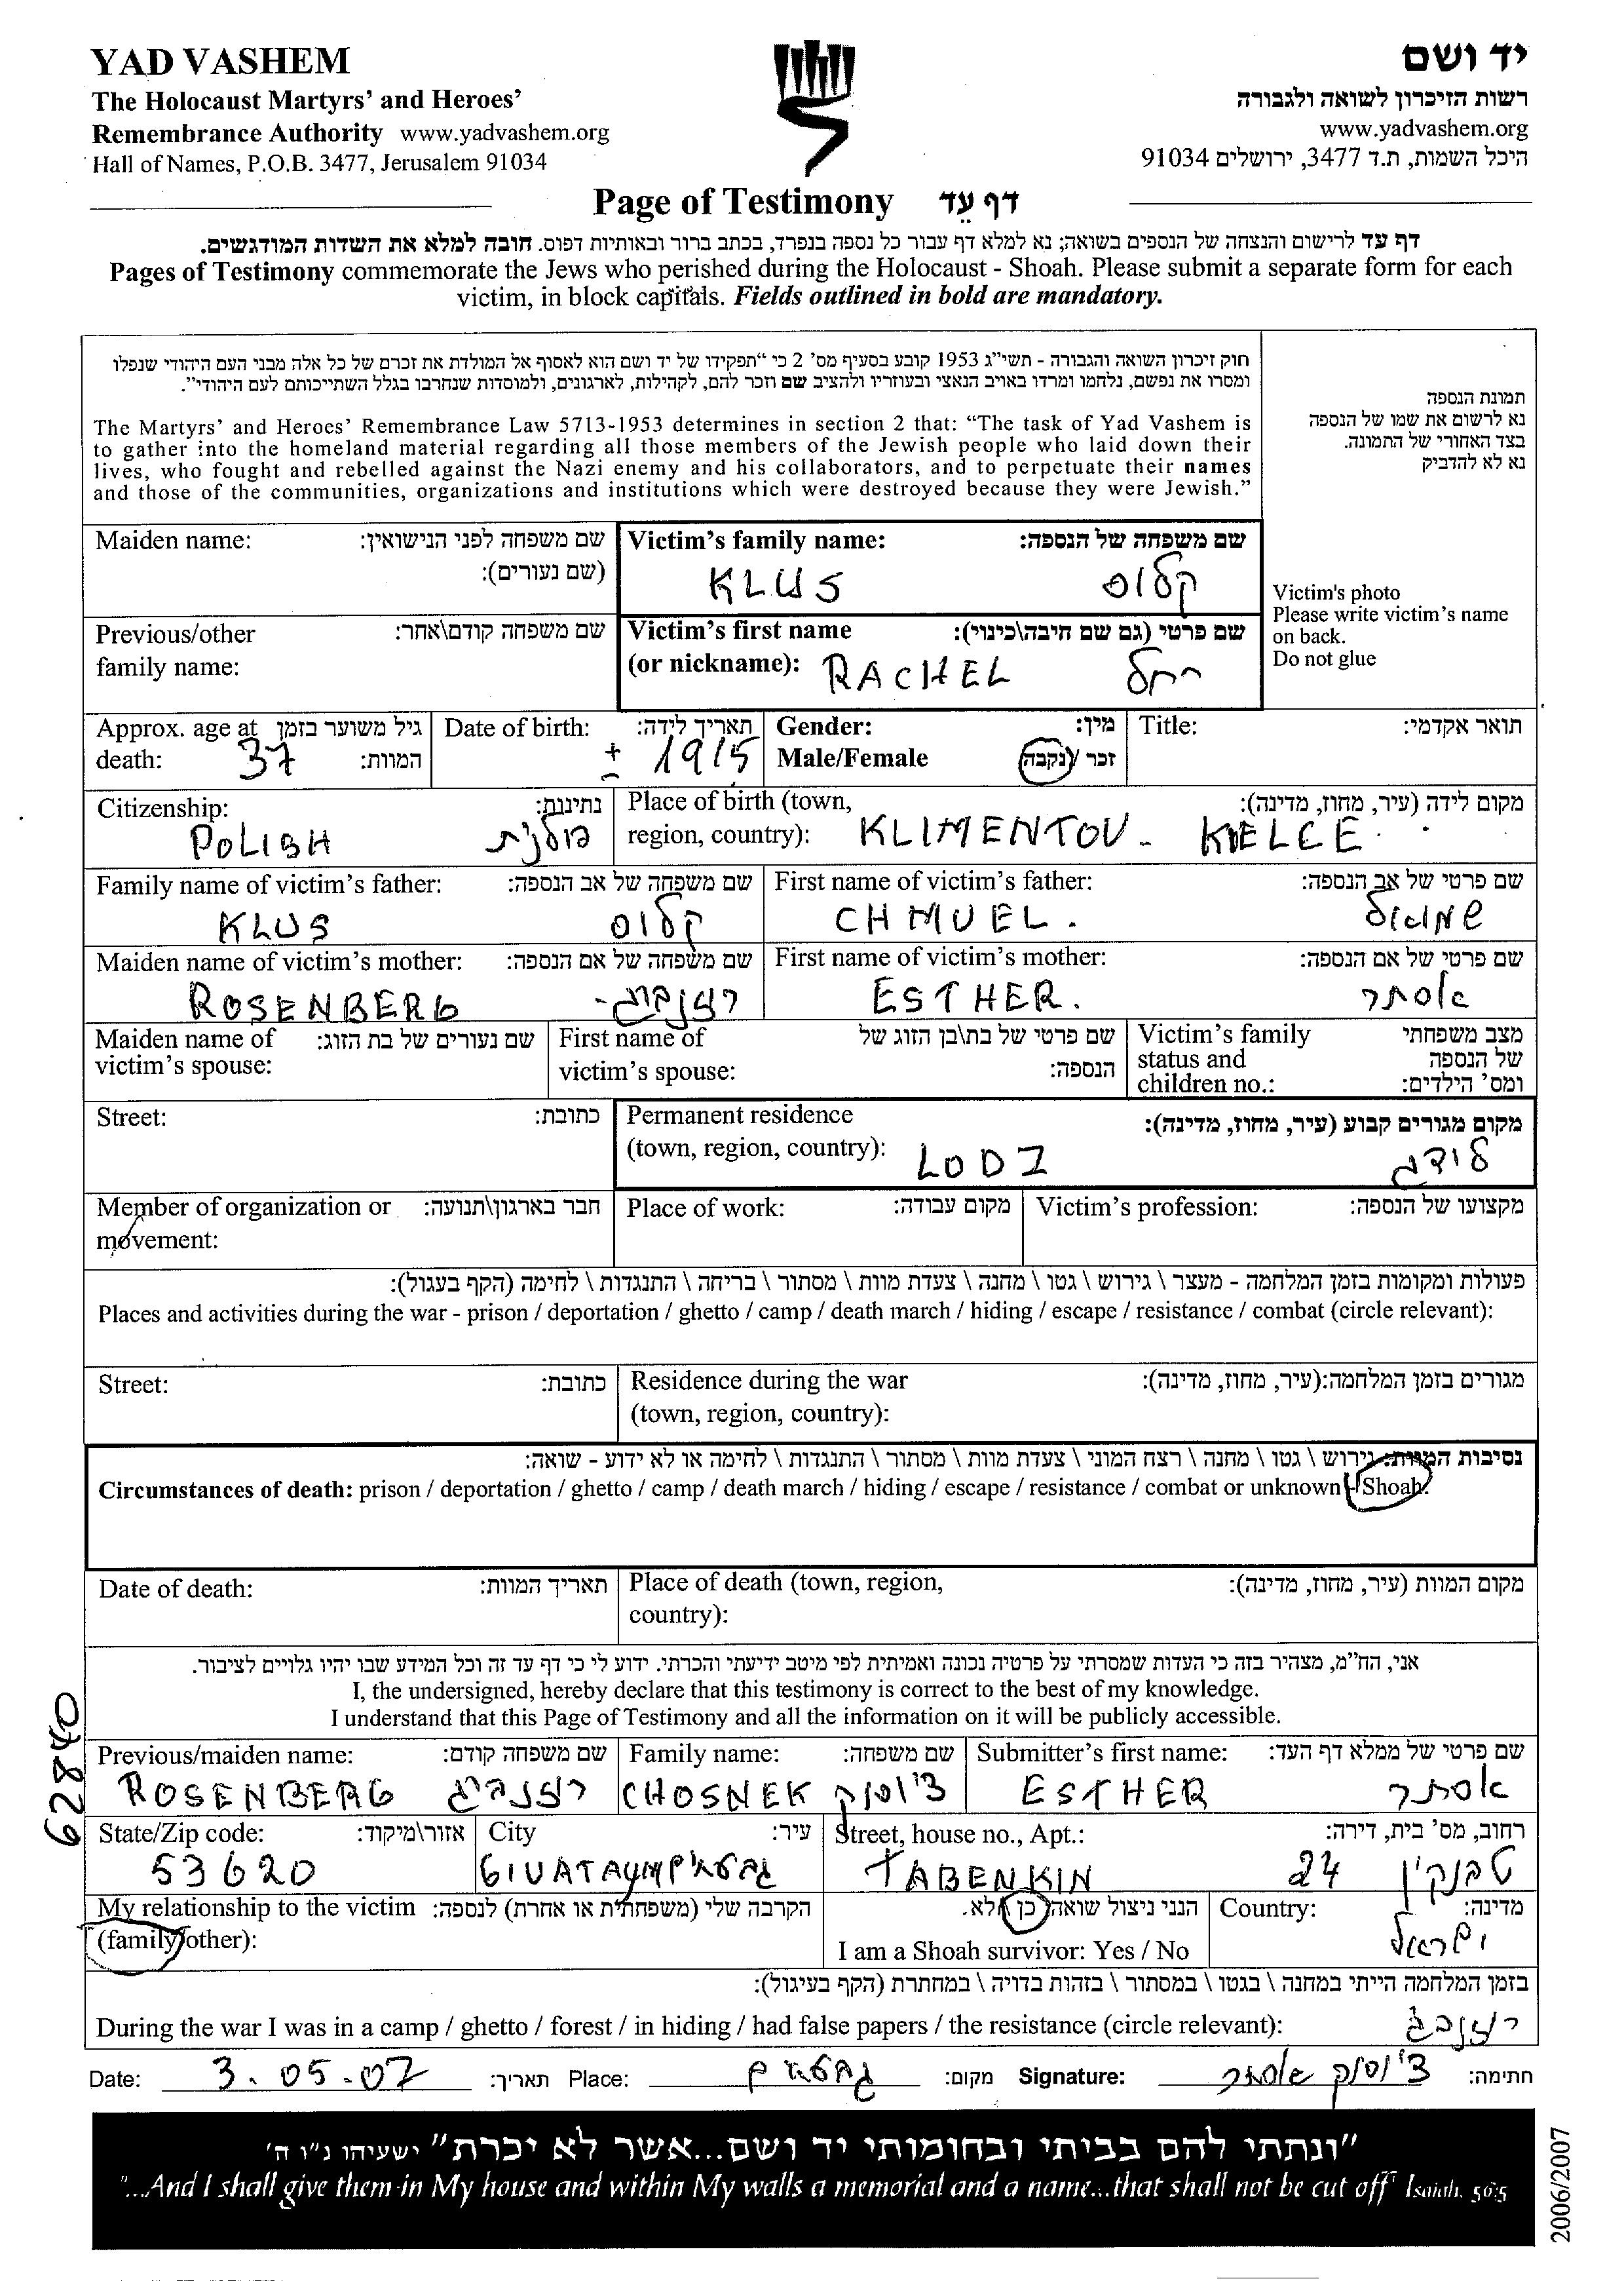 YAD VASHEM
The Holocaust Martyrs' and Heroes'
Remembrance Authority www.yadvashem.org
Hall of Names, P.O.B. 3477, Jerusalem 91034
יד ושם
רשות הזיכרון לשואה ולגבורה
www.yadvashem.org
היכל השמות, ת.ד 3477, ירושלים 91034
Page of Testimony דף עֵד
דף עד לרישום והנצחה של הנספים בשואה; נא למלא דף עבור כל נספה בנפרד, בכתב ברור ובאותיות דפוס. חובה למלא את השדות המודגשים.
Pages of Testimony commemorate the Jews who perished during the Holocaust - Shoah. Please submit a separate form for each
victim, in block capitals. Fields outlined in bold are mandatory.
חוק זיכרון השואה והגבורה - תשי"ג 1953 קובע בסעיף מס' 2 כי "תפקידו של יד ושם הוא לאסוף אל המולדת את זכרם של כל אלה מבני העם היהודי שנפלו
ומסרו את נפשם, נלחמו ומרדו באויב הנאצי ובעוזריו ולהציב שם וזכר להם, לקהילות, לארגונים, ולמוסדות שנחרבו בגלל השתייכותם לעם היהודי".
The Martyrs' and Heroes' Remembrance Law 5713-1953 determines in section 2 that: "The task of Yad Vashem is
to gather into the homeland material regarding all those members of the Jewish people who laid down their
lives, who fought and rebelled against the Nazi enemy and his collaborators, and to perpetuate their names
and those of the communities, organizations and institutions which were destroyed because they were Jewish."
תמונת הנספה
נא לרשום את שמו של הנספה
בצד האחורי של התמונה.
נא לא להדביק
Victim's photo
Please write victim's name
on back.
Do not glue
Maiden name: שם משפחה לפני הנישואין:
(שם נעורים):
Victim's family name: שם משפחה של הנספה:
KLUS קלוס
Previous/other שם משפחה קודם\אחר:
family name:
Victim's first name שם פרטי (גם שם חיבה\כינוי):
(or nickname): RACHEL רחל
Approx. age at גיל משוער בזמן
death: 37 המוות:
Date of birth: תאריך לידה:
± 1915
Gender: מין:
Male/Female זכר / נקבה
Title: תואר אקדמי:
Citizenship: נתינות:
POLISH פולנית
Place of birth (town, מקום לידה (עיר, מחוז, מדינה):
region, country): KLIMENTOV - KIELCE
Family name of victim's father: שם משפחה של אב הנספה:
KLUS קלוס
First name of victim's father: שם פרטי של אב הנספה:
CHMUEL. שמואל
Maiden name of victim's mother: שם משפחה של אם הנספה:
ROSENBERG רוזנברג
First name of victim's mother: שם פרטי של אם הנספה:
ESTHER. אסתר
Maiden name of שם נעורים של בת הזוג:
victim's spouse:
First name of שם פרטי של בת\בן הזוג של
victim's spouse: הנספה:
Victim's family מצב משפחתי
status and של הנספה
children no.: ומס' הילדים:
Street: כתובת:
Permanent residence מקום מגורים קבוע (עיר, מחוז, מדינה):
(town, region, country): LODZ לודג
Member of organization or חבר בארגון\תנועה:
movement:
Place of work: מקום עבודה:
Victim's profession: מקצועו של הנספה:
פעולות ומקומות בזמן המלחמה - מעצר \ גירוש \ גטו \ מחנה \ צעדת מוות \ מסתור \ בריחה \ התנגדות \ לחימה (הקף בעגול):
Places and activities during the war - prison / deportation / ghetto / camp / death march / hiding / escape / resistance / combat (circle relevant):
Street: כתובת:
Residence during the war מגורים בזמן המלחמה:(עיר, מחוז, מדינה):
(town, region, country):
נסיבות המוות: גירוש \ גטו \ מחנה \ רצח המוני \ צעדת מוות \ מסתור \ התנגדות \ לחימה או לא ידוע - שואה:
Circumstances of death: prison / deportation / ghetto / camp / death march / hiding / escape / resistance / combat or unknown - Shoah:
Date of death: תאריך המוות:
Place of death (town, region, מקום המוות (עיר, מחוז, מדינה):
country):
אני, הח"מ, מצהיר בזה כי העדות שמסרתי על פרטיה נכונה ואמיתית לפי מיטב ידיעתי והכרתי. ידוע לי כי דף עד זה וכל המידע שבו יהיו גלויים לציבור.
I, the undersigned, hereby declare that this testimony is correct to the best of my knowledge.
I understand that this Page of Testimony and all the information on it will be publicly accessible.
62840
Previous/maiden name: שם משפחה קודם:
ROSENBERG רוזנברג
Family name: שם משפחה:
CHOSNEK צ'וסנק
Submitter's first name: שם פרטי של ממלא דף העד:
ESTHER אסתר
State/Zip code: אזור\מיקוד:
53620
City עיר:
GIVATAYM גבעתיים
Street, house no., Apt.: רחוב, מס' בית, דירה:
TABENKIN 24 טבנקין
My relationship to the victim הקרבה שלי (משפחתית או אחרת) לנספה:
(family/other):
הנני ניצול שואה: כן \ לא.
I am a Shoah survivor: Yes / No
Country: מדינה:
ישראל
בזמן המלחמה הייתי במחנה \ בגטו \ במסתור \ בזהות בדויה \ במחתרת (הקף בעיגול):
During the war I was in a camp / ghetto / forest / in hiding / had false papers / the resistance (circle relevant):
רוזנברג
Date: 3.05.07 תאריך: Place: גבעתיים מקום: Signature: צ'וסנק אסתר חתימה:
"ונתתי להם בביתי ובחומותי יד ושם...אשר לא יכרת" ישעיהו נ"ו ה'
"...And I shall give them in My house and within My walls a memorial and a name...that shall not be cut off" Isaiah. 56:5
2006/2007